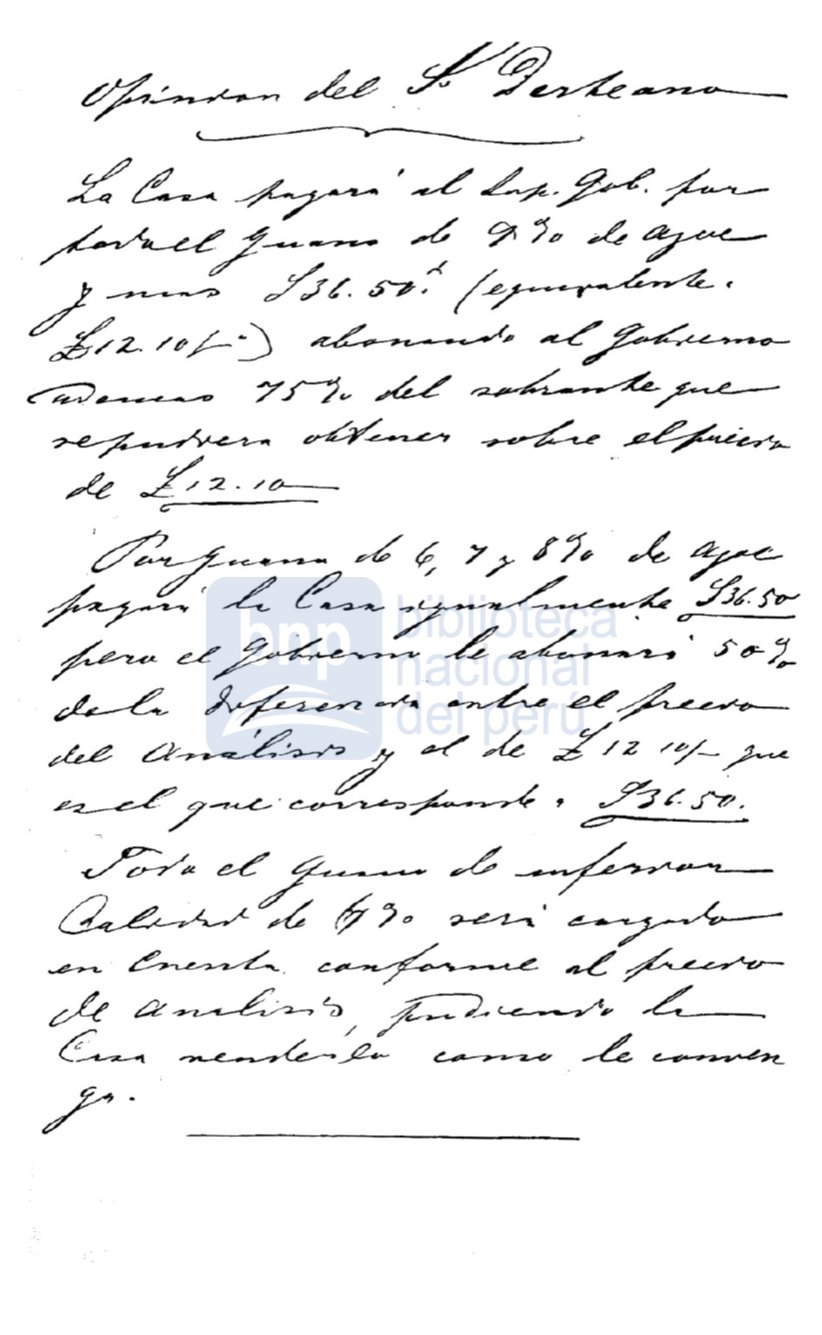 Opinion del Sr Derteano
La Casa pagará al Sup. Gob. por
todo el Guano de 9% de azoe
y mas S36.50 (equivalente a
£12.10/-) abonando al Gobierno
ademas 75% del sobrante que
se pudiera obtener sobre el precio
de £12.10
Por guano de 6, 7 y 8% de azoe
pagará la Casa igualmente S36.50
pero el Gobierno le abonará 50%
de la diferencia entre el precio
del Análisis y el de £12 10/- que
es el que corresponde a S36.50.
Todo el Guano de inferior
Calidad de % será cargado
en Cuenta conforme al precio
de Analisis, pudiendo la
Casa venderlo como le conven
ga.
bnp biblioteca
nacional
del perú